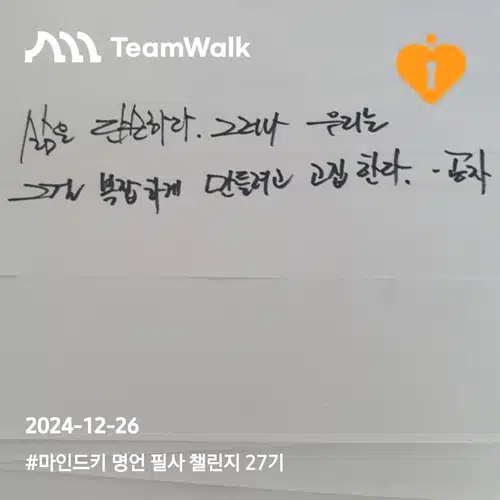 TeamWalk
삶은 단순하다. 그러나 우리는
그걸 복잡하게 만들려고 고집한다. - 공자
2024-12-26
#마인드키 명언 필사 챌린지 27기